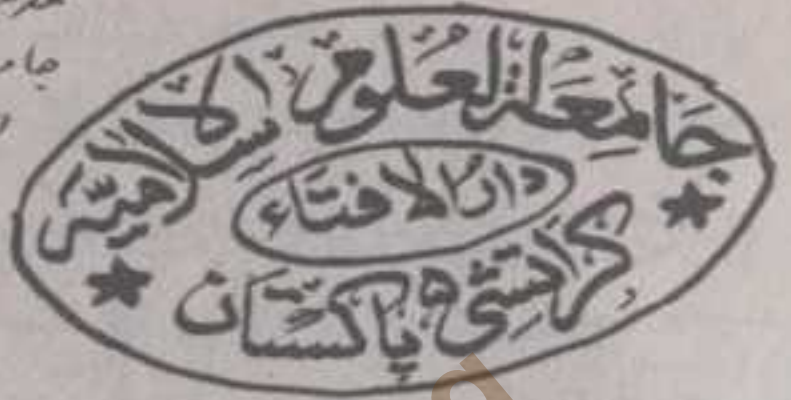 جامعة العلوم الاسلامیہ
دار الافتاء
كراتشي ه باكستان